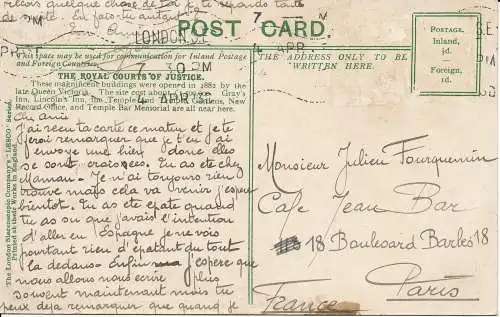 reçois quelque chose de toi je te regarde toute
de suite. Et fais tu autant
POST CARD.
LONDON. S.E.
7 PM
4 APR
This space may be used for communication for Inland Postage
and Foreign Countries.
THE ADDRESS ONLY TO BE
WRITTEN HERE.
POSTAGE.
Inland,
½d.
Foreign,
1d.
THE ROYAL COURTS OF JUSTICE.
These magnificent buildings were opened in 1882 by the
late Queen Victoria. The site cost about
Gray's
Inn, Lincoln's Inn, the Temple and
New
Record Office, and Temple Bar Memorial are all near here.
Cher Amis
J'ai reçu ta carte ce matin et je te
ferai remarquer que je t'en ai
envoyé une hier donc elles
se sont croisées. Tu as été chez
Maman. Je n'ai toujours rien
trouvé mais cela va venir j'espère
bientôt. Tu as été épaté quand
tu as su que j'avais l'intention
d'aller en Espagne je ne vois
pourtant rien d'épatant du tout
là dedans. Enfin j'espère que
nous allons nous écrire plus
souvent maintenant mais tu
peux déjà remarquer que quand je
Monsieur Julien Fourquemin
Café Jean Bar
18 Boulevard Barbès 18
Paris
France
The London Stereoscopic Company's "LESCO" Series.
Printed at their Works in England.